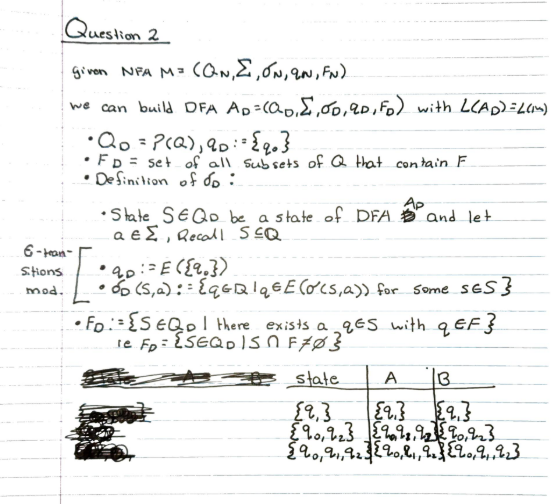 Question 2
given NFA M = (QN, Σ, σN, qN, FN)
we can build DFA AD = (QD, Σ, σD, qD, FD) with L(AD) = L(M)
• QD = P(Q), qD := {q0}
• FD = set of all subsets of Q that contain F
• Definition of σD :
• State S ∈ QD be a state of DFA AD and let
a ∈ Σ, Recall S ⊆ Q
6-tran-
sitions
mod.
• qD := E({q0})
• σD(S,a) := {q ∈ Q | q ∈ E(σ(s,a)) for some s ∈ S}
• FD := {S ∈ QD | there exists a q ∈ S with q ∈ F}
ie FD = {S ∈ QD | S ∩ F ≠ ∅}
state A B
{q1} {q1} {q1}
{q0, q2} {q0, q1, q2} {q0, q2}
{q0, q1, q2} {q0, q1, q2} {q0, q1, q2}